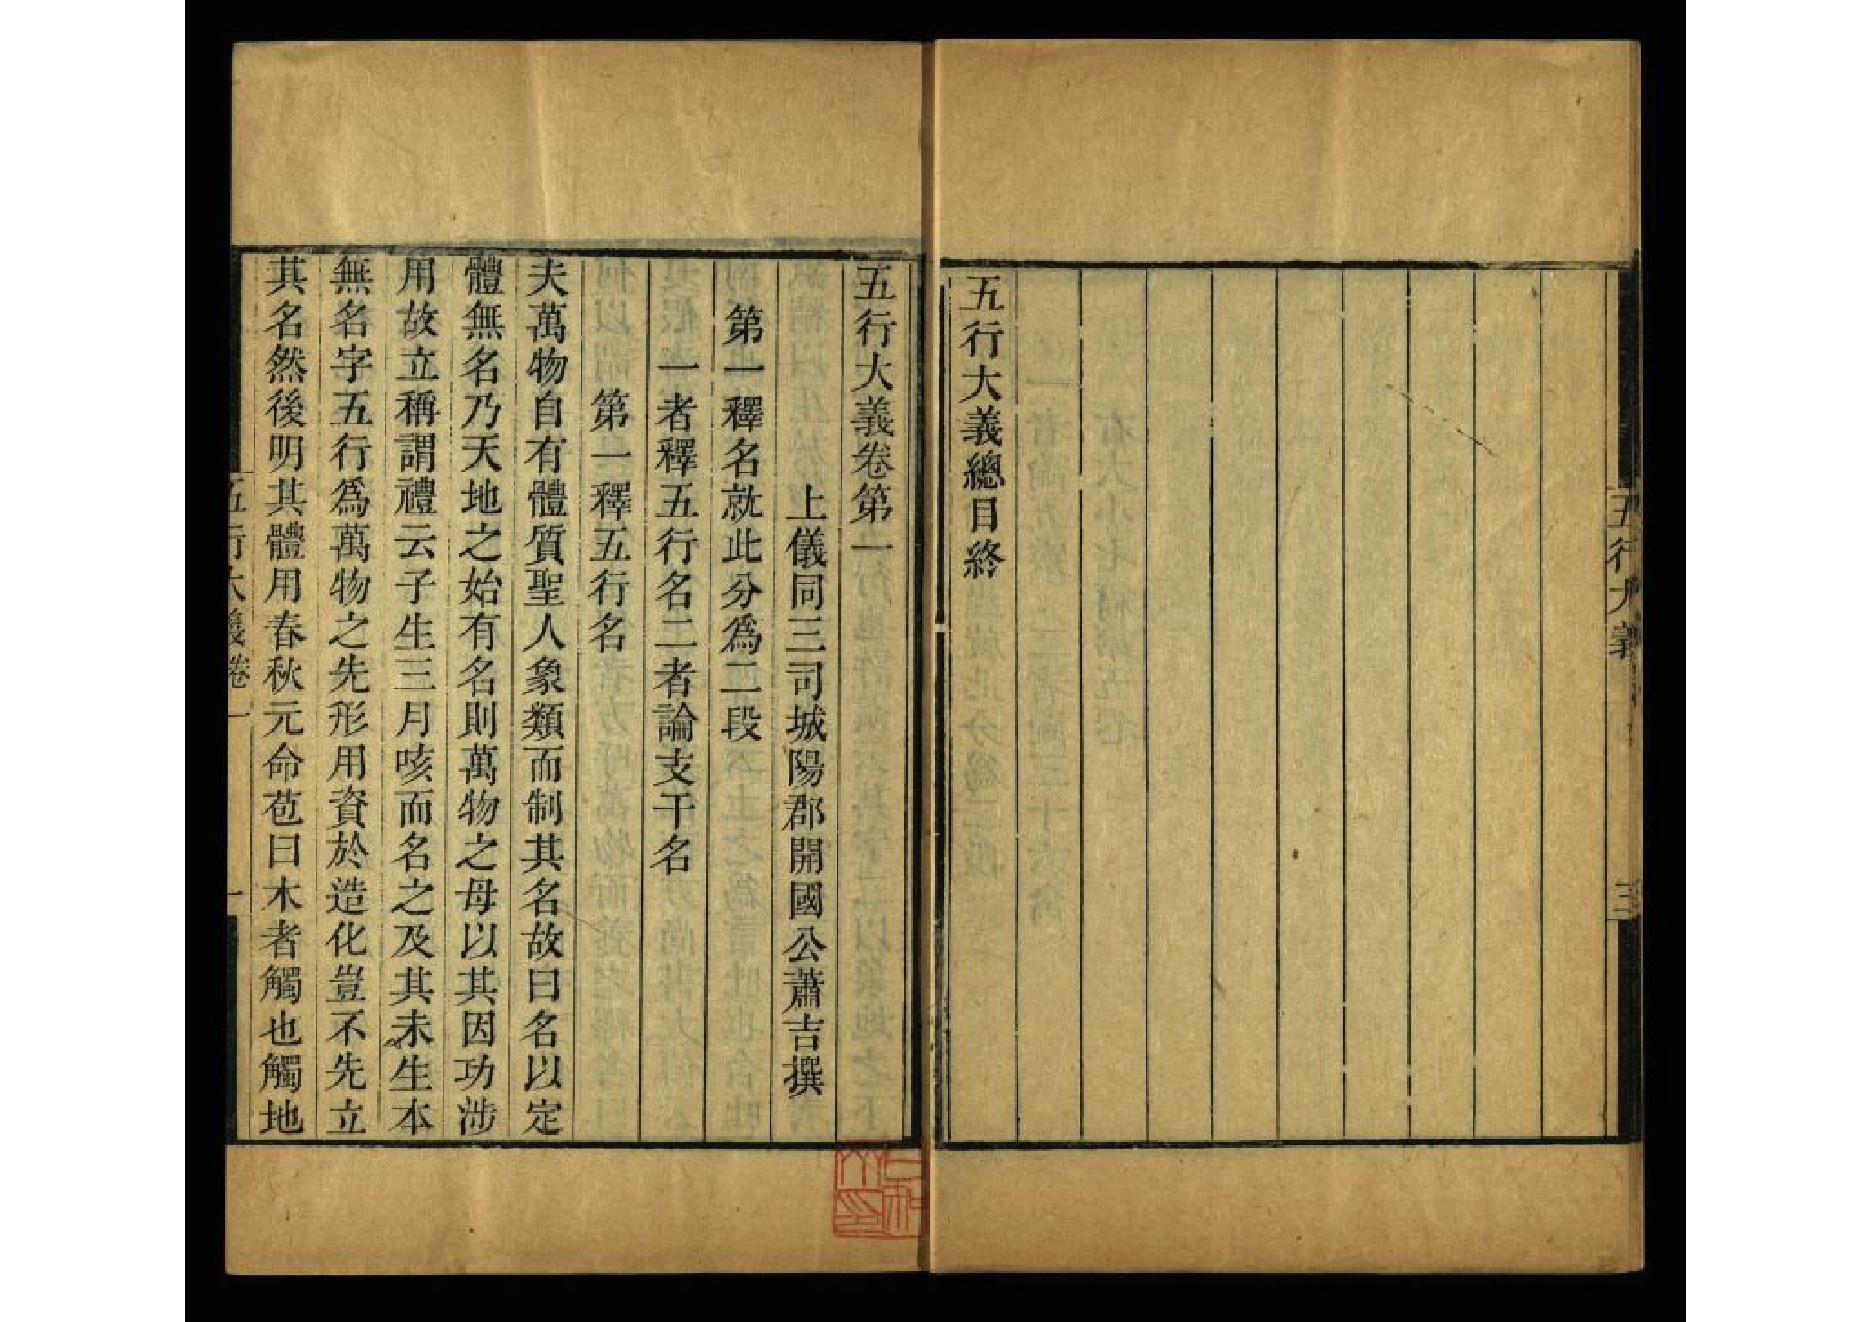 五行大義
三
五行大義總目終
五行大義卷第一
上儀同三司城陽郡開國公蕭吉撰
第一釋名就此分爲二段
一者釋五行名二者論支干名
第一釋五行名
夫萬物自有體質聖人象類而制其名故曰名以定
體無名乃天地之始有名則萬物之母以其因功涉
用故立稱謂禮云子生三月咳而名之及其未生本
無名字五行爲萬物之先形用資於造化豈不先立
其名然後明其體用春秋元命苞曰木者觸也觸地
五行大義卷一
一